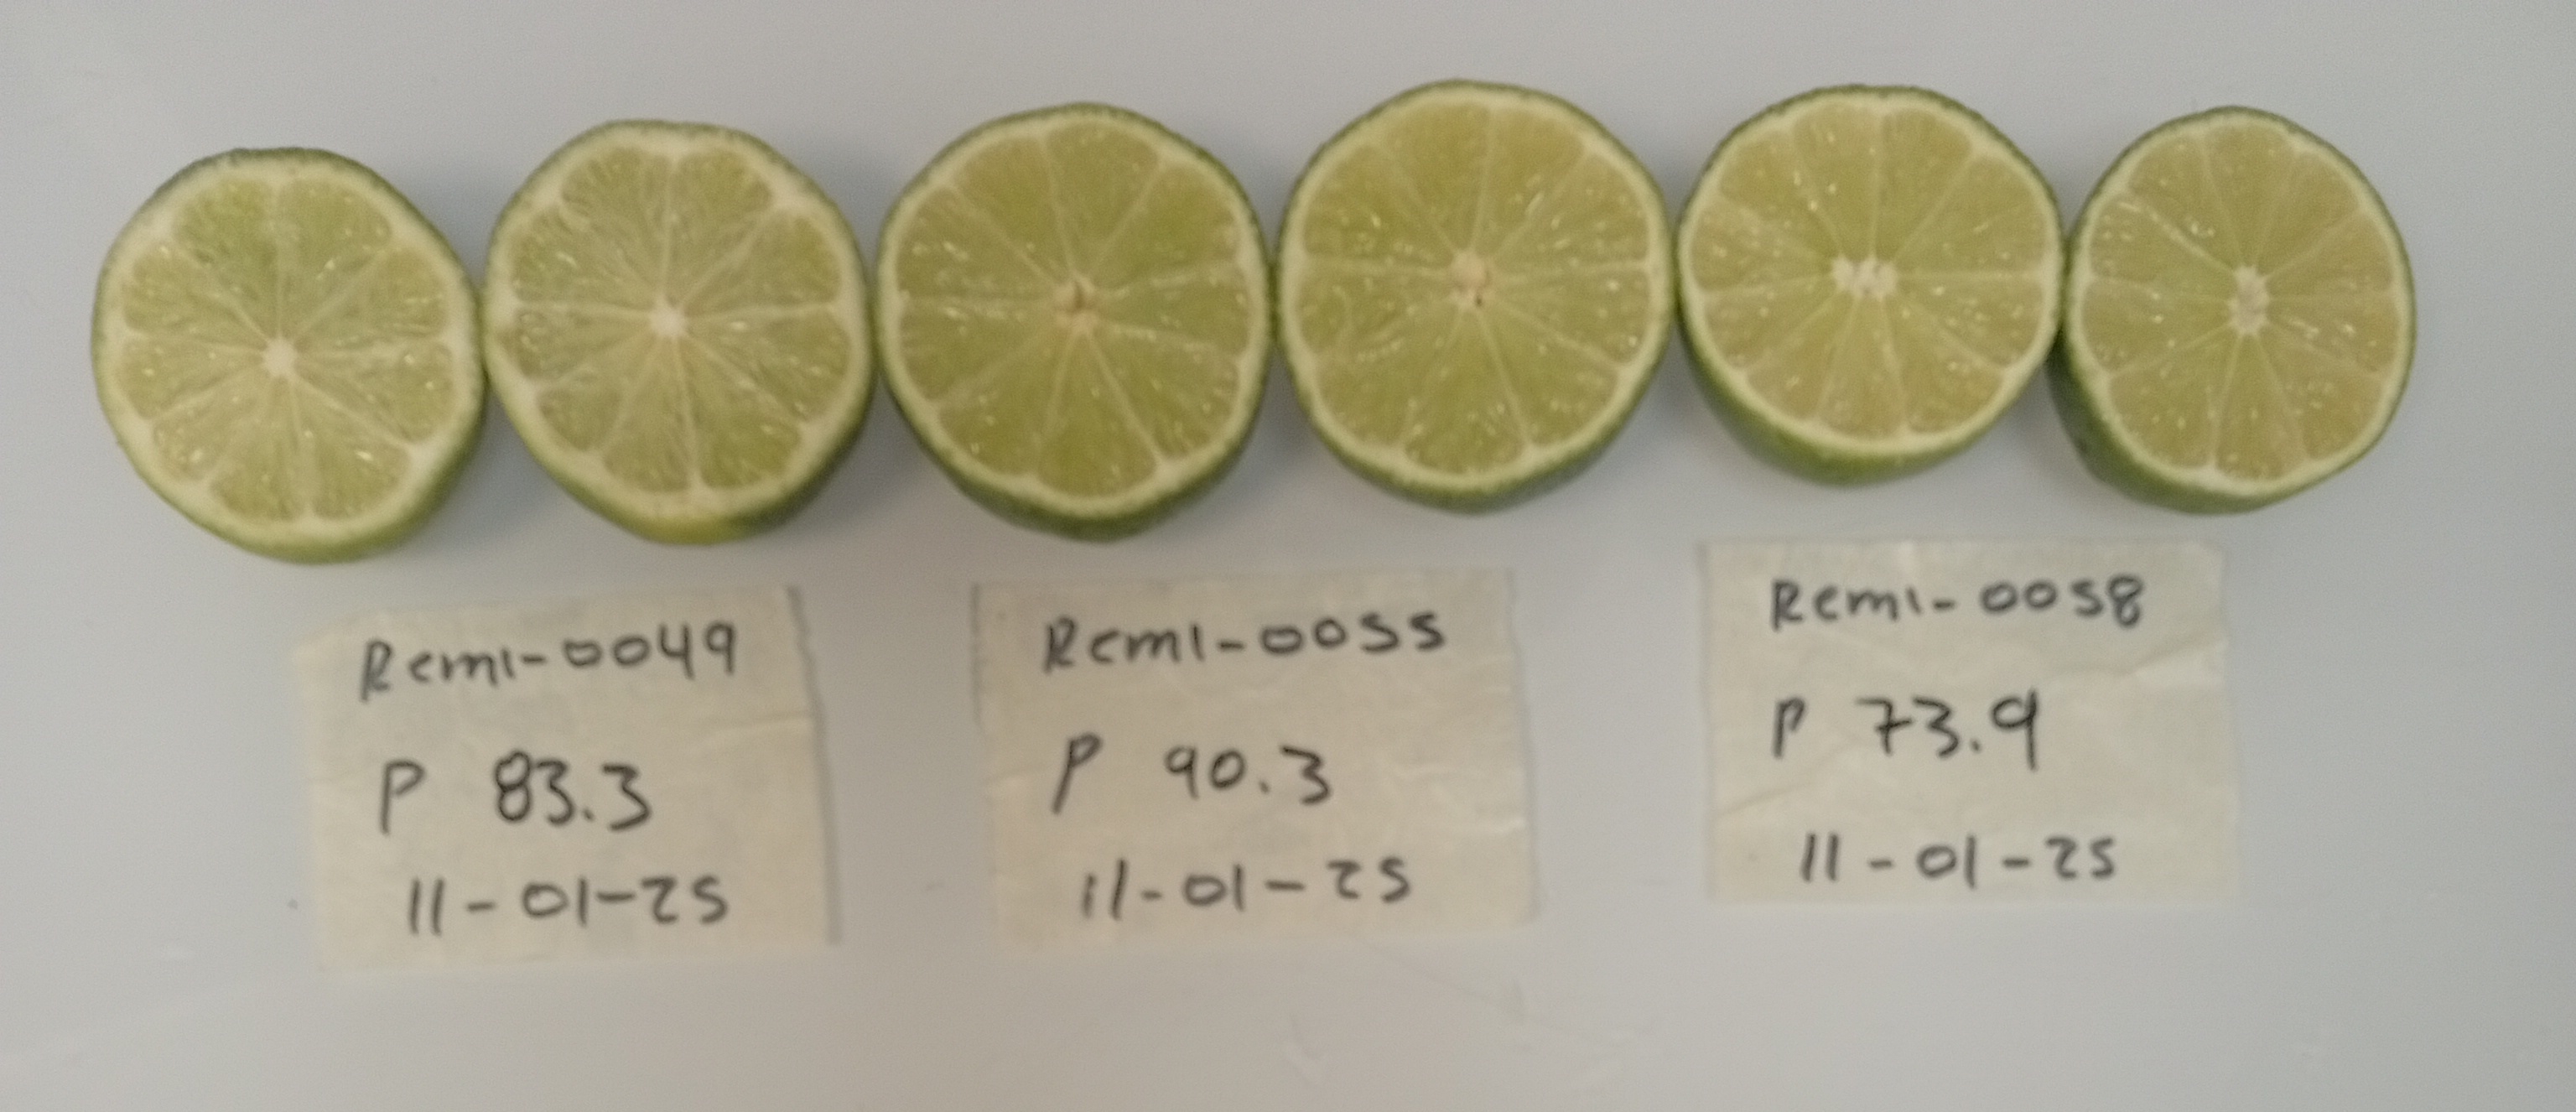 Remi-0049
P 83.3
11-01-25
Remi-0055
P 90.3
11-01-25
Remi-0058
P 73.9
11-01-25